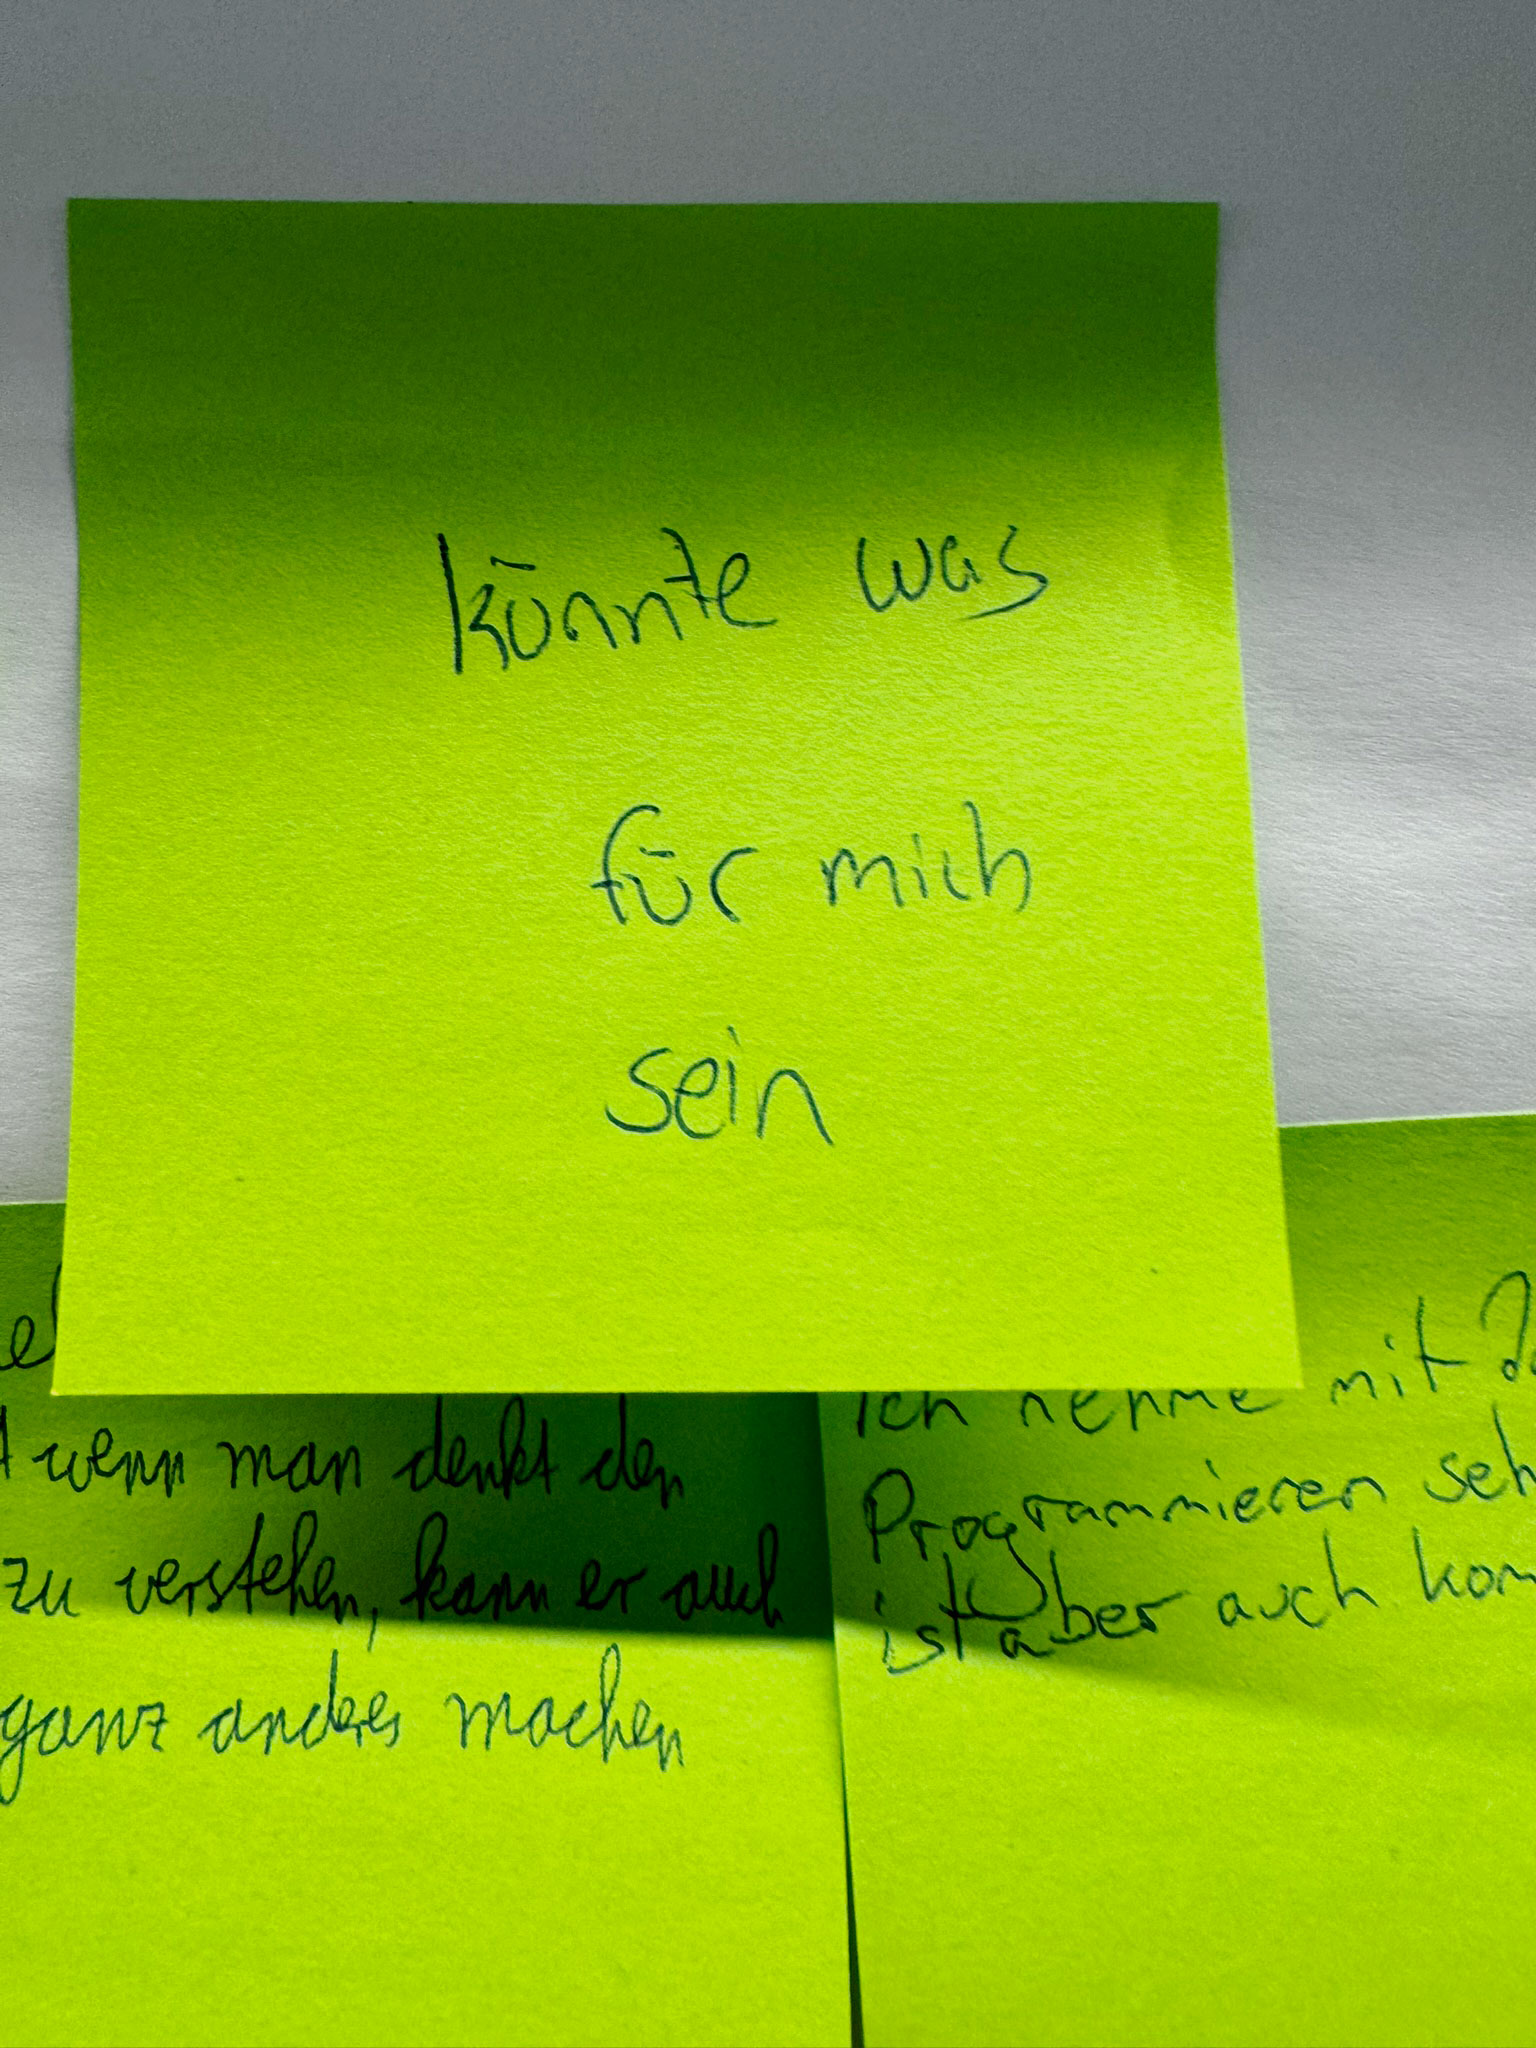 könnte was
für mich
sein
wenn man denkt den
zu verstehen, kann er auch
ganz anderes machen
Ich nehme mit
Programmieren
ist aber auch